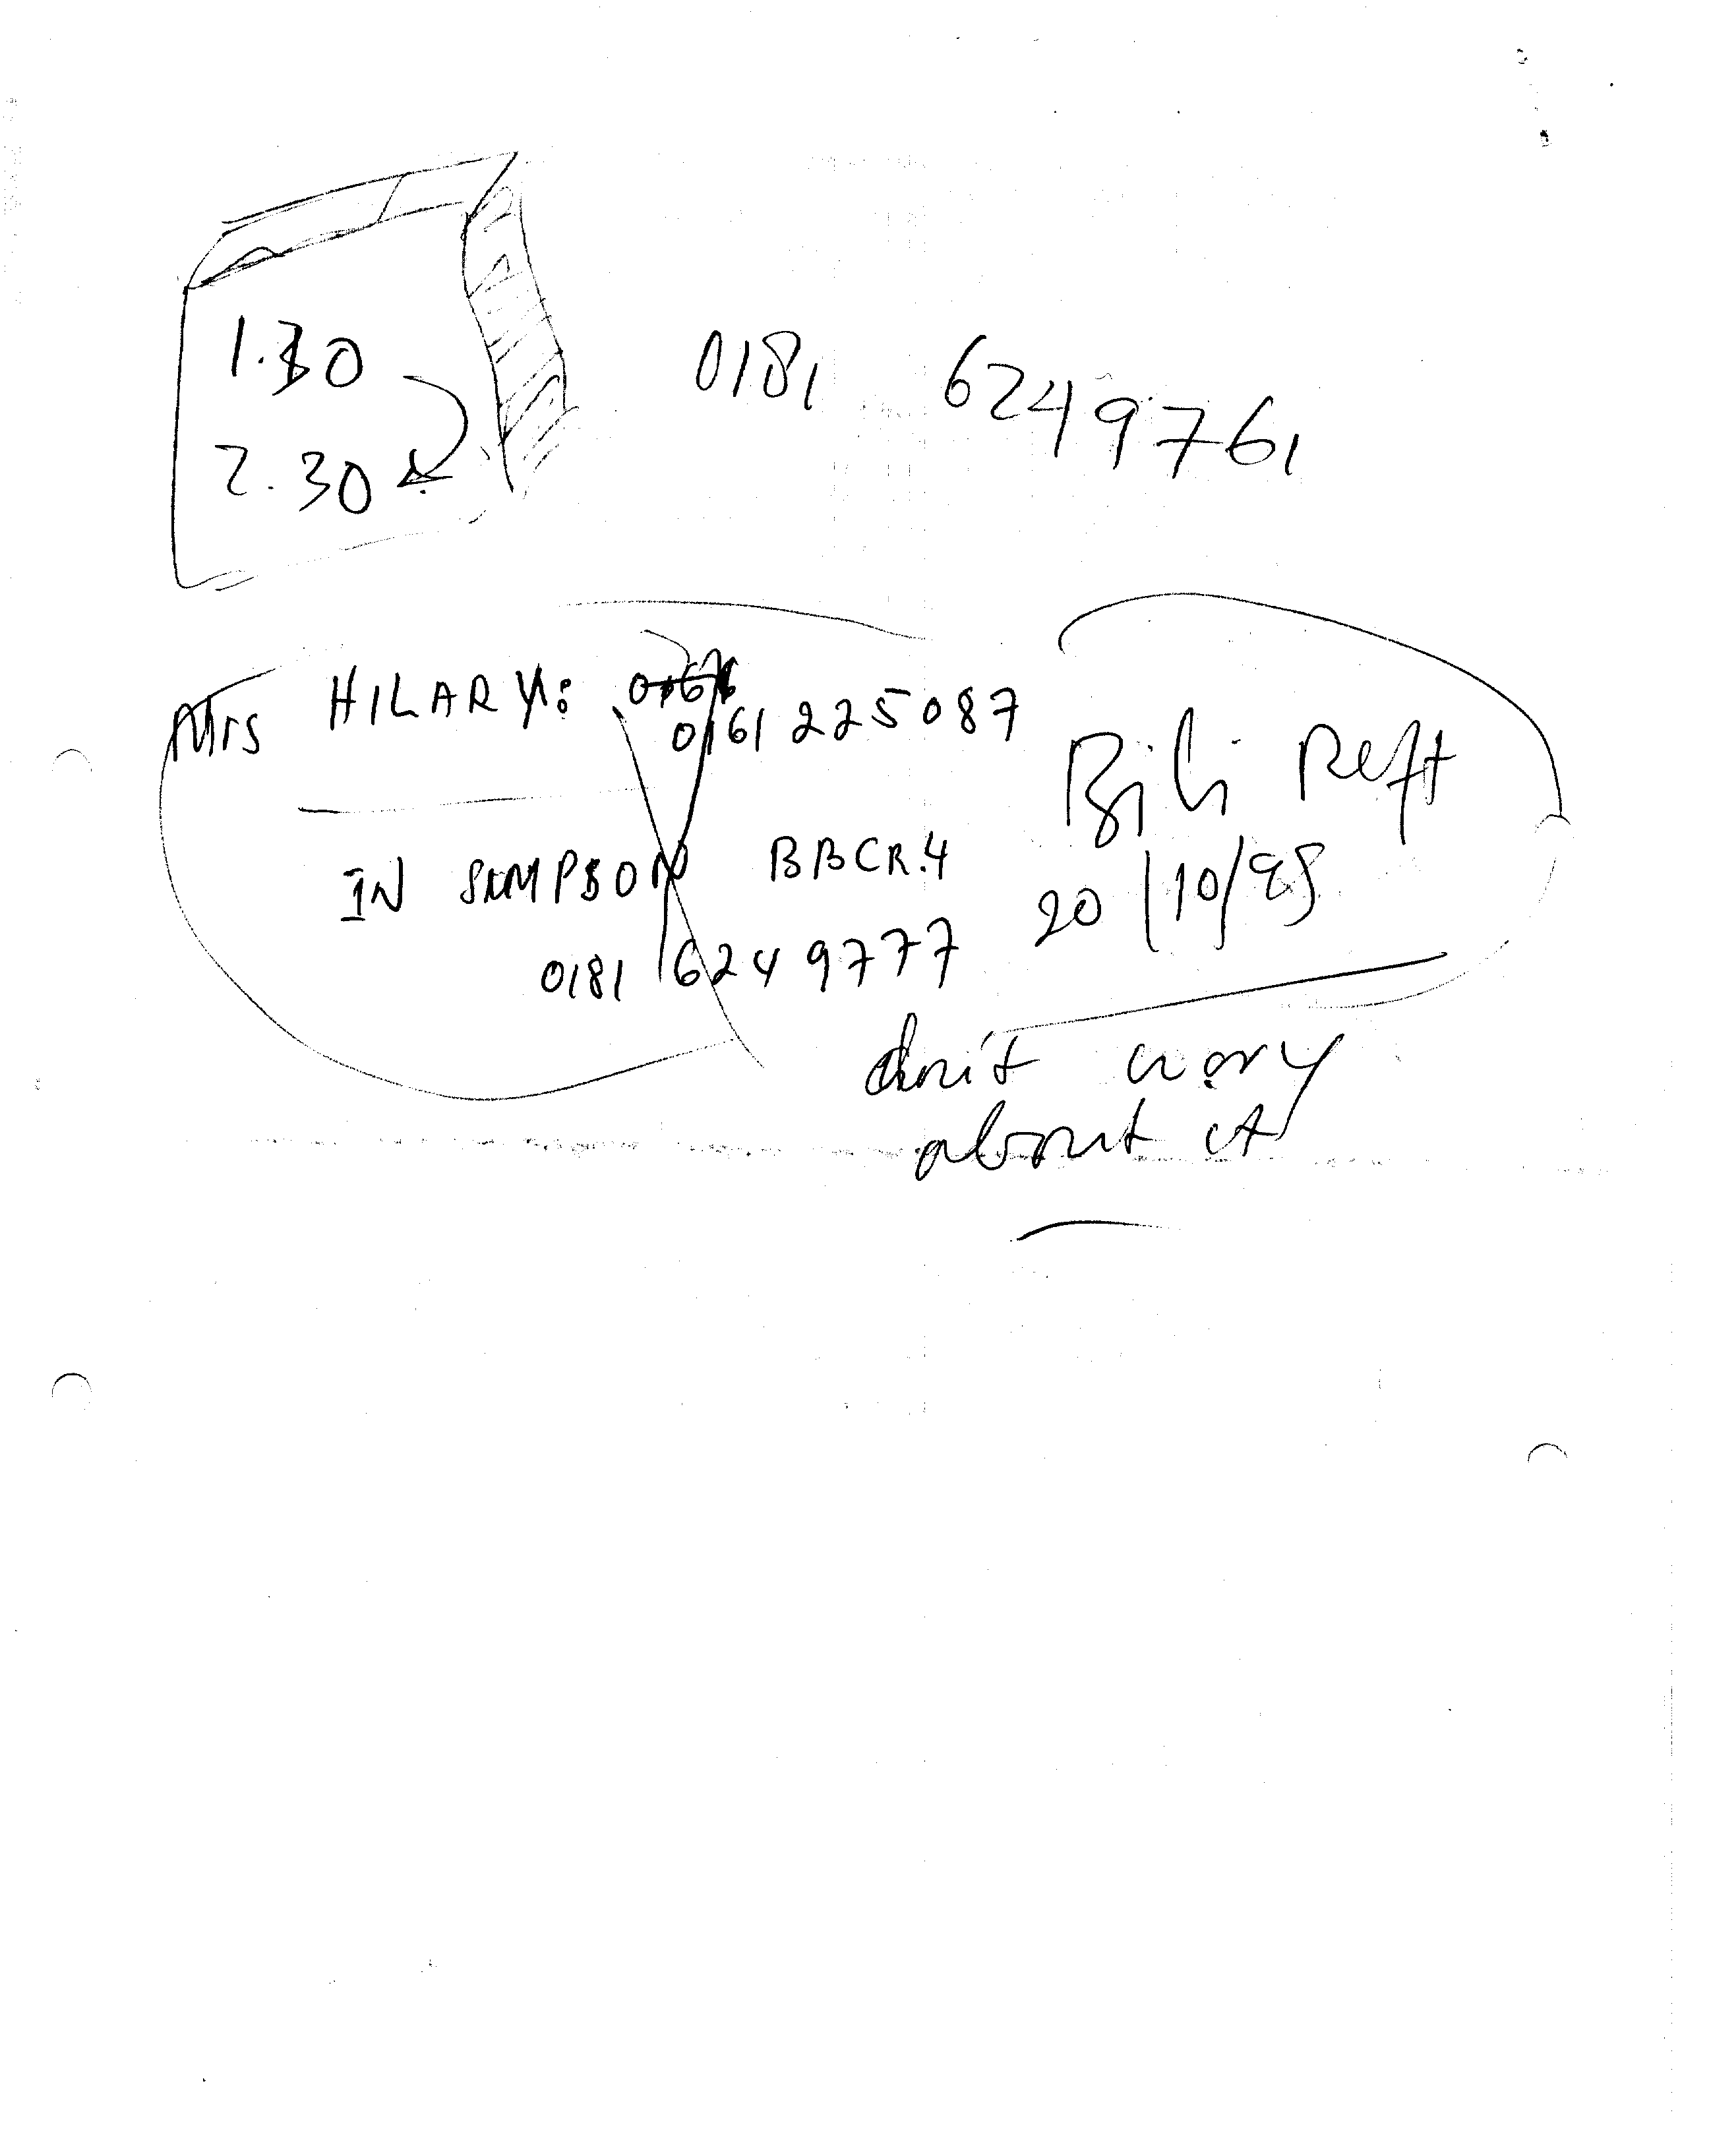 1.30
2.30
0181 6249761
Mrs HILARY: 0161
0161 225087
IN SIMPSON BBCR.4
0181 6249777
20/10/95
don't worry
about it